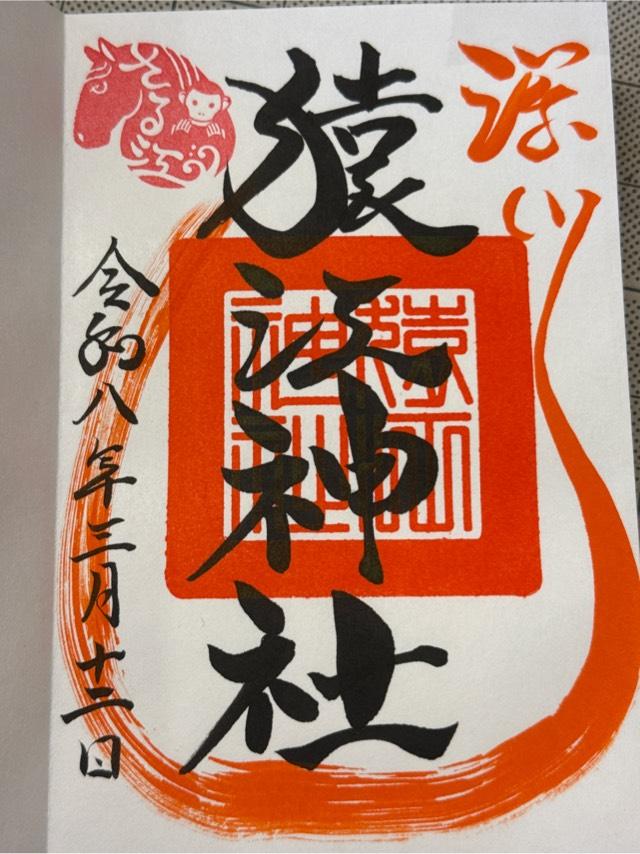 深川
猿江神社
猿江神社
さる江の
令和八年三月十二日